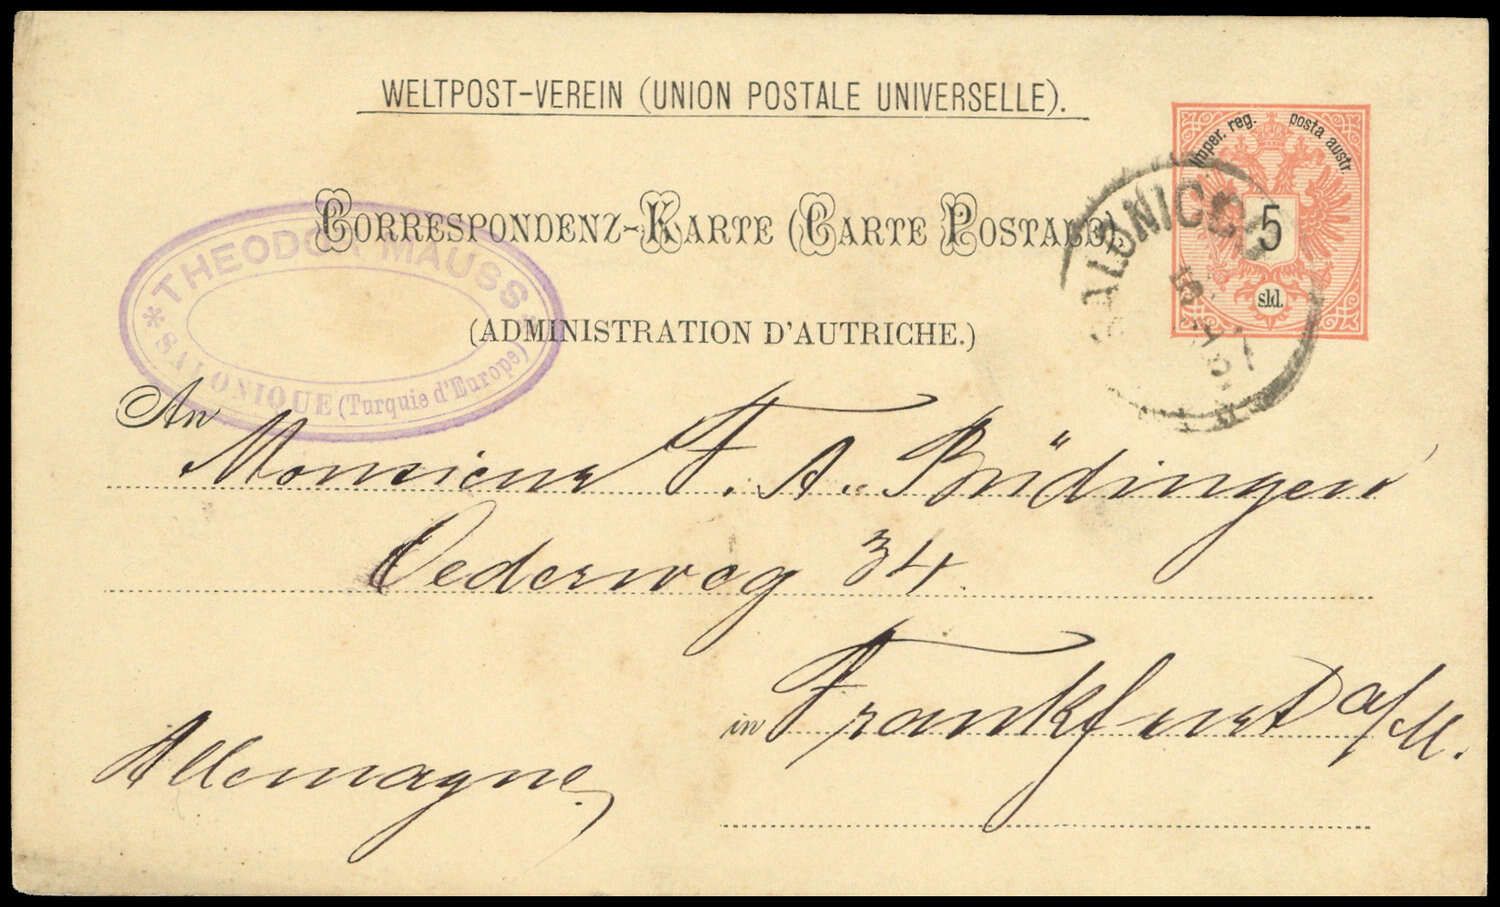 WELTPOST-VEREIN (UNION POSTALE UNIVERSELLE).
Imper. reg. posta austr.
5
sld.
SALONICCO
CORRESPONDENZ-KARTE (CARTE POSTALE)
THEODOR MAUSS
*SALONIQUE (Turquie d'Europe)
(ADMINISTRATION D'AUTRICHE.)
An
Monsieur F. A. Büdingen
Oederweg 34.
in Frankfurt a/M.
Allemagne